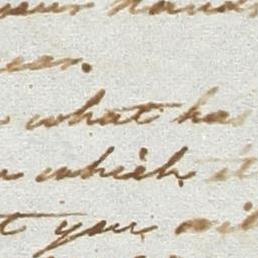 your hands
ear.
what has
which it
t you wil